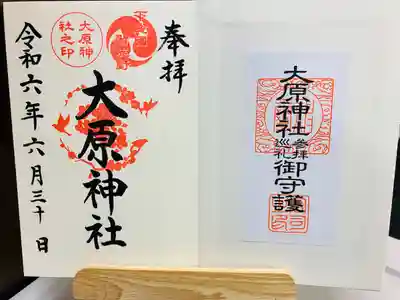 奉拝
大原神社
大原神
社之印
令和六年六月三十日
大原神社
参拝
巡礼
御守護